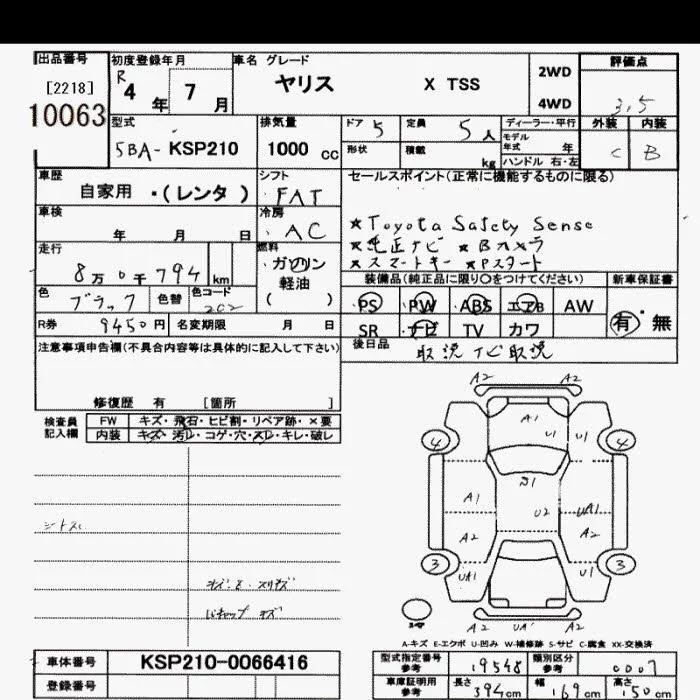 出品番号 初度登録年月 車名 グレード 評価点
[2218] R4年 7月 ヤリス X TSS 2WD 3.5
10063 4WD
型式 排気量 ドア 5 定員 5人 ディーラー・平行 外装 内装
5BA-KSP210 1000cc 形状 積載 kg モデル年式 年 C B
ハンドル 右・左
車歴 シフト セールスポイント(正常に機能するものに限る)
自家用・(レンタ) FAT
車検 年 月 日 冷房 AC ★Toyota Safety Sense
走行 燃料 ★純正ナビ ★Bカメラ
8万0千794km ガソリン ★スマートキー ★Pスタート
軽油
( )
色 ブラック 色替 色コード 202 装備品(純正品に限り○をつけてください) 新車保証書
PS PW ABS エアB AW 有・無
R券 9450円 名変期限 月 日 SR ナビ TV カワ
注意事項申告欄(不具合内容等は具体的に記入して下さい) 後日品 取説 ナビ取説
修復歴 有 [箇所 ]
検査員記入欄 FW キズ・飛石・ヒビ割・リペア跡・×要
内装 キズ・汚レ・コゲ・穴・スレ・キレ・破レ
A2 A2
A1
4 U1 U1 4
B1
A1 U2 UA1
A2 A2
3 UA1 UA1 3
A2 UA1 A2
シートスレ
A-キズ E-エクボ U-凹み W-補修跡 S-サビ C-腐食 XX-交換済
車体番号 KSP210-0066416
登録番号
型式指定番号参考 19548 類別区分参考 0007
車庫証明用参考 長さ 394cm 幅 169cm 高さ 150cm